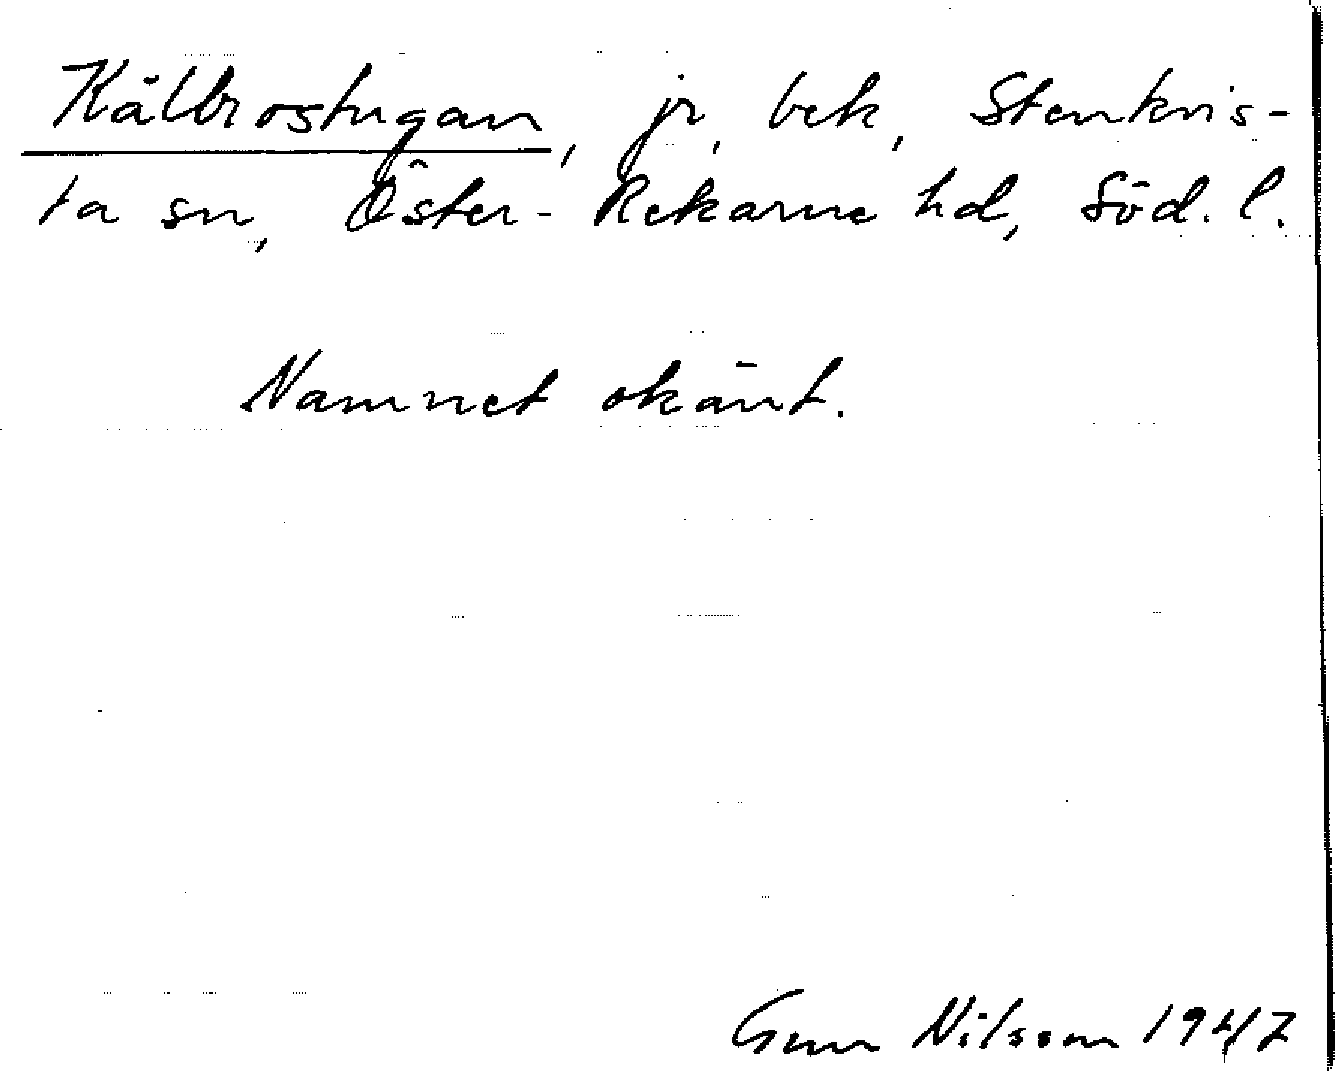 Kålbrostugan, jr, bek, Stenkvis-
ta sn, Öster-Rekarne hd, Söd. l.
Namnet okänt.
Gun Nilsson 1947